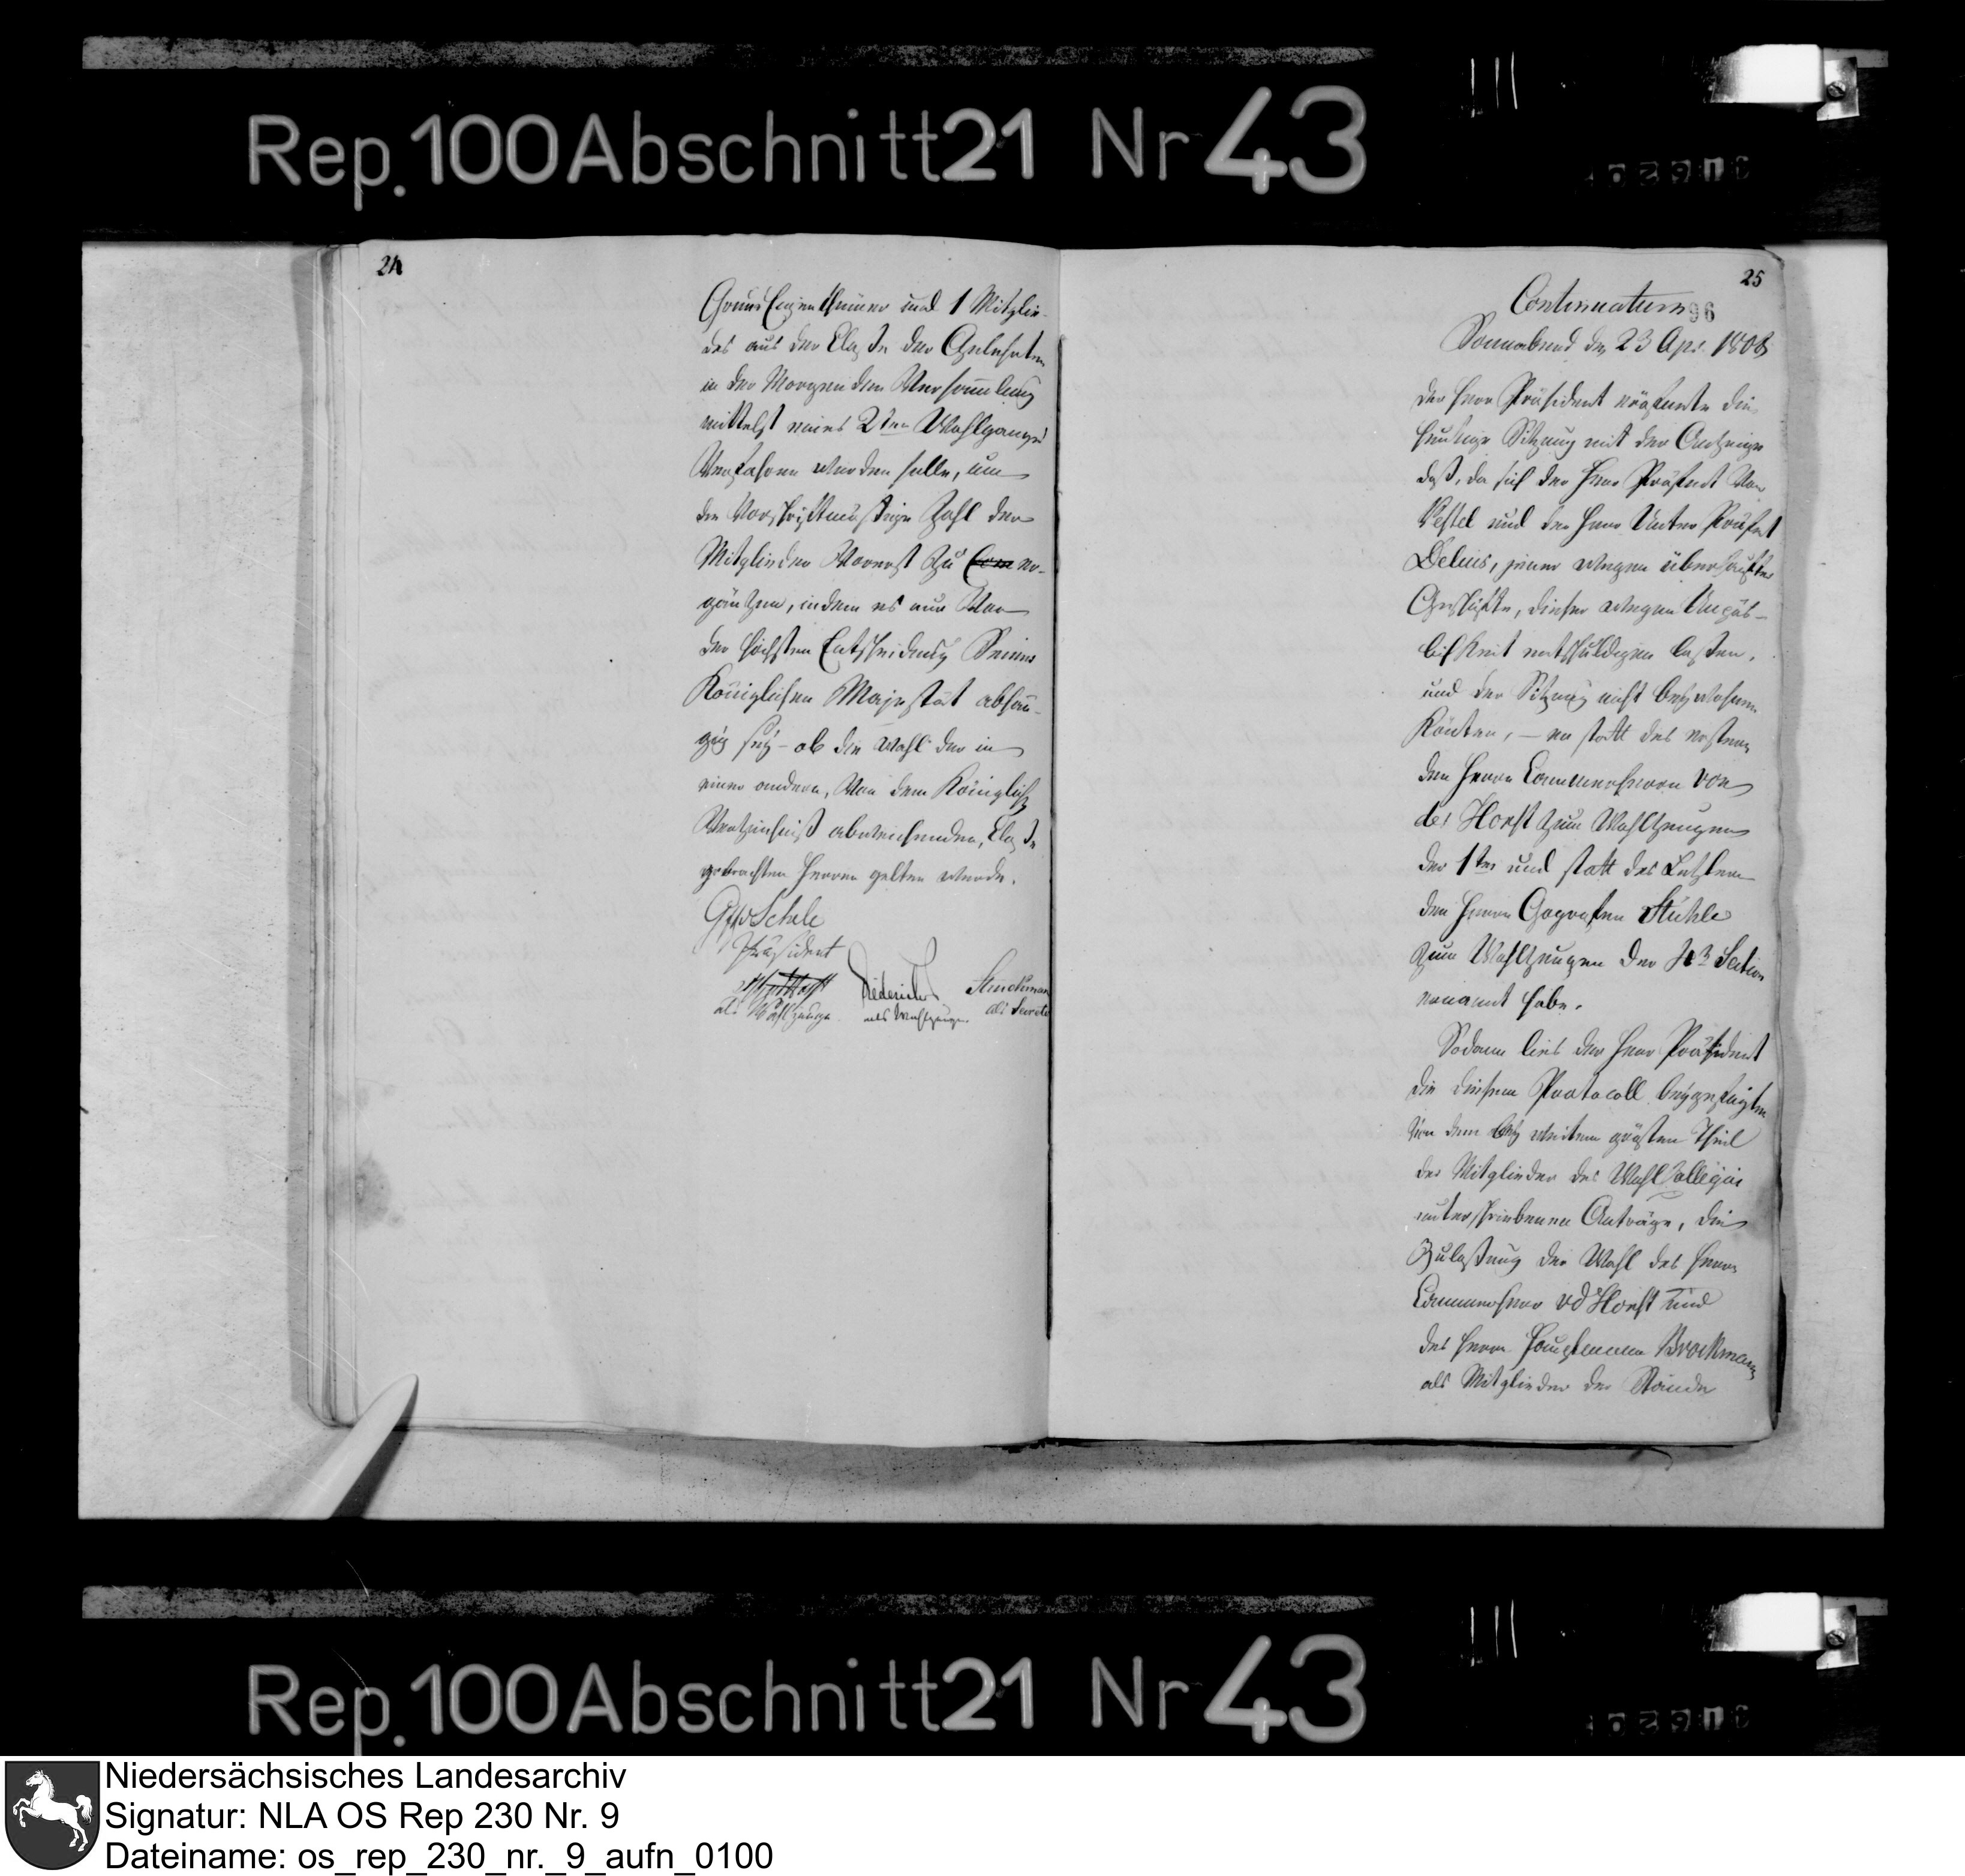 Rep. 100 Abschnitt 21 Nr 43
24
Grund Eigenthümer und 1 Mitglie-
des aus der Classe der Gelehrten
in der Morgenden Versammlung
mittelst eines 2ten Wahlganges
Verfahren werden solle, um
die Vorschriftmäßige Zahl der
Mitglieder Vorerst zu er-
gäntzen, indem es nun Von
der höchsten Entscheidung Seiner
Königlichen Majestät abhän-
gig sey – ob die Wahl der in
einer andern, Von dem Königlich
Verzeichniß abweichenden, Classe
gebrachten Herren gelten werde.
Schele
Präsident
als Wahlzeuge
Diederichs
als Wahlzeuge
Struckman
als Secret
25
Continuatum
96
Sonnabend den 23 Apr. 1808
Der Herr Präsident eröfnete die
heutige Sitzung mit der Anzeige
daß, da sich der Herr Präfect Von
Pestel und der Herr Unter Präfect
Delius, jener wegen überhäufter
Geschäfte, dieser wegen Unpäs-
lichkeit entschuldigen lassen,
und der Sitzung nicht beywohnen
Könten, – er statt des erstern
den Herrn Cammerherrn von
der Horst zum Wahlzeugen
der 1ten und statt des Letztern
den Herrn Gografen Stühle
zum Wahlzeugen der Section
ernannt habe.
Sodann lies der Herr Präsident
die diesem Protocoll beygefügten
Von dem bey weitem größten Theil
der Mitglieder des Wahl Collegii
unterschriebenen Anträge, die
Zulaßung der Wahl des Herrn
Cammerherr vd Horst und
des Herrn Hauptmann Brockmann
als Mitglieder der Stände
Rep. 100 Abschnitt 21 Nr 43
Niedersächsisches Landesarchiv
Signatur: NLA OS Rep 230 Nr. 9
Dateiname: os_rep_230_nr._9_aufn_0100